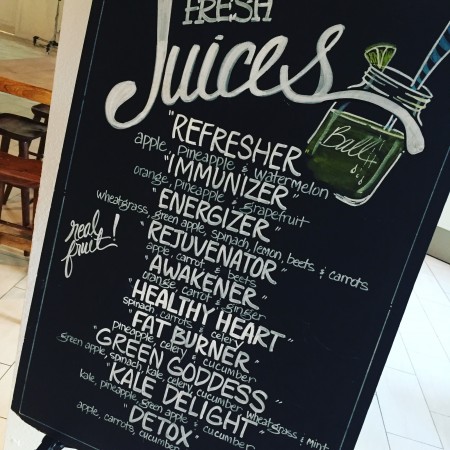 FRESH
Juices
Ball
"REFRESHER"
apple, Pineapple & watermelon
"IMMUNIZER"
orange, pineapple & grapefruit
"ENERGIZER"
wheatgrass, green apple, spinach, lemon, beets & carrots
"REJUVENATOR"
apple, carrot & beets
"AWAKENER"
orange, carrot & ginger
"HEALTHY HEART"
spinach, carrots & celery
"FAT BURNER"
pineapple, celery & cucumber
"GREEN GODDESS"
green apple, spinach, kale, celery, cucumber, wheatgrass & mint
"KALE DELIGHT"
kale, pineapple, green apple & cucumber
"DETOX"
apple, carrots, cucumber
real
fruit!